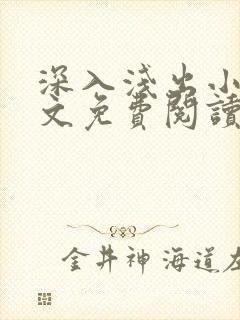 深入浅出小
文免費閱讀
金井神海道左